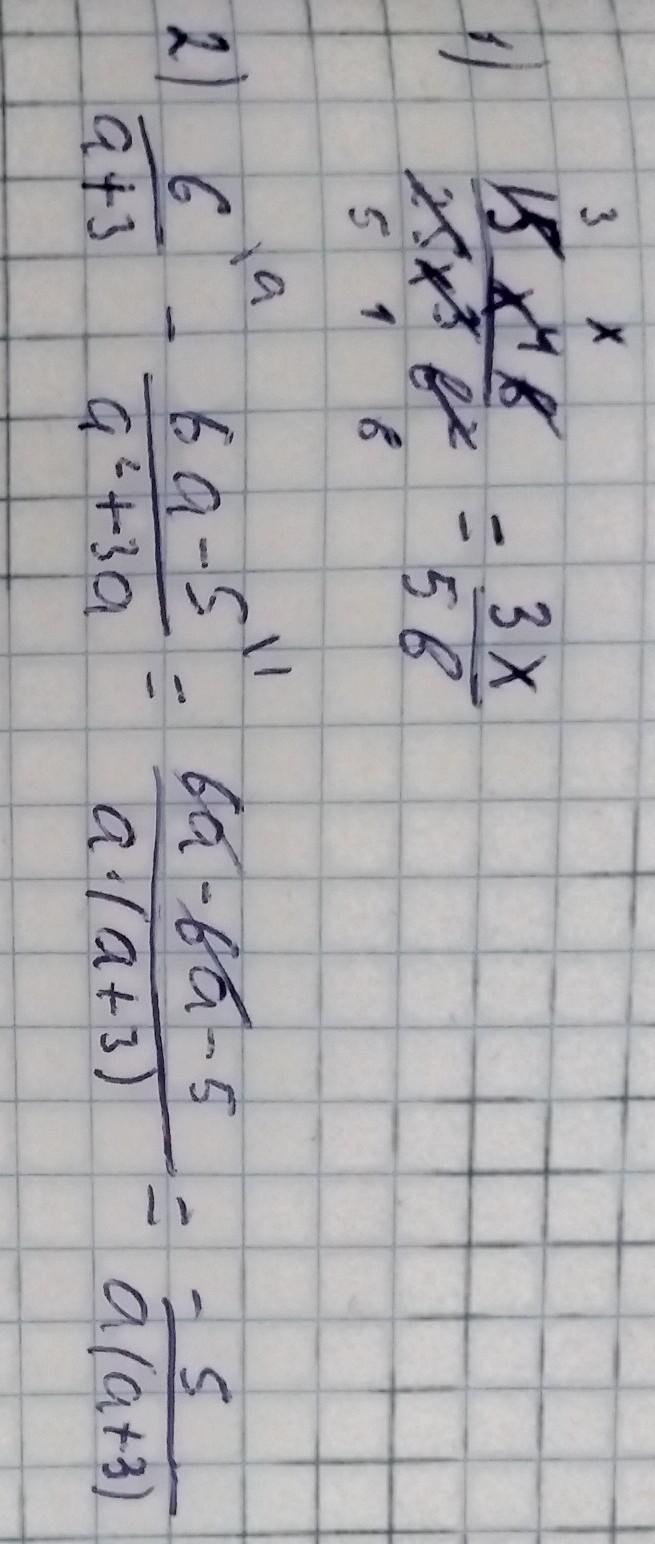 3 x
1) 15 x⁴ в / 25 x³ в² = 3x / 5в
5 1 в
2) 6 \a / a+3 - 6a-5 \1 / a²+3a = 6a-6a-5 / a·(a+3) = - 5 / a(a+3)